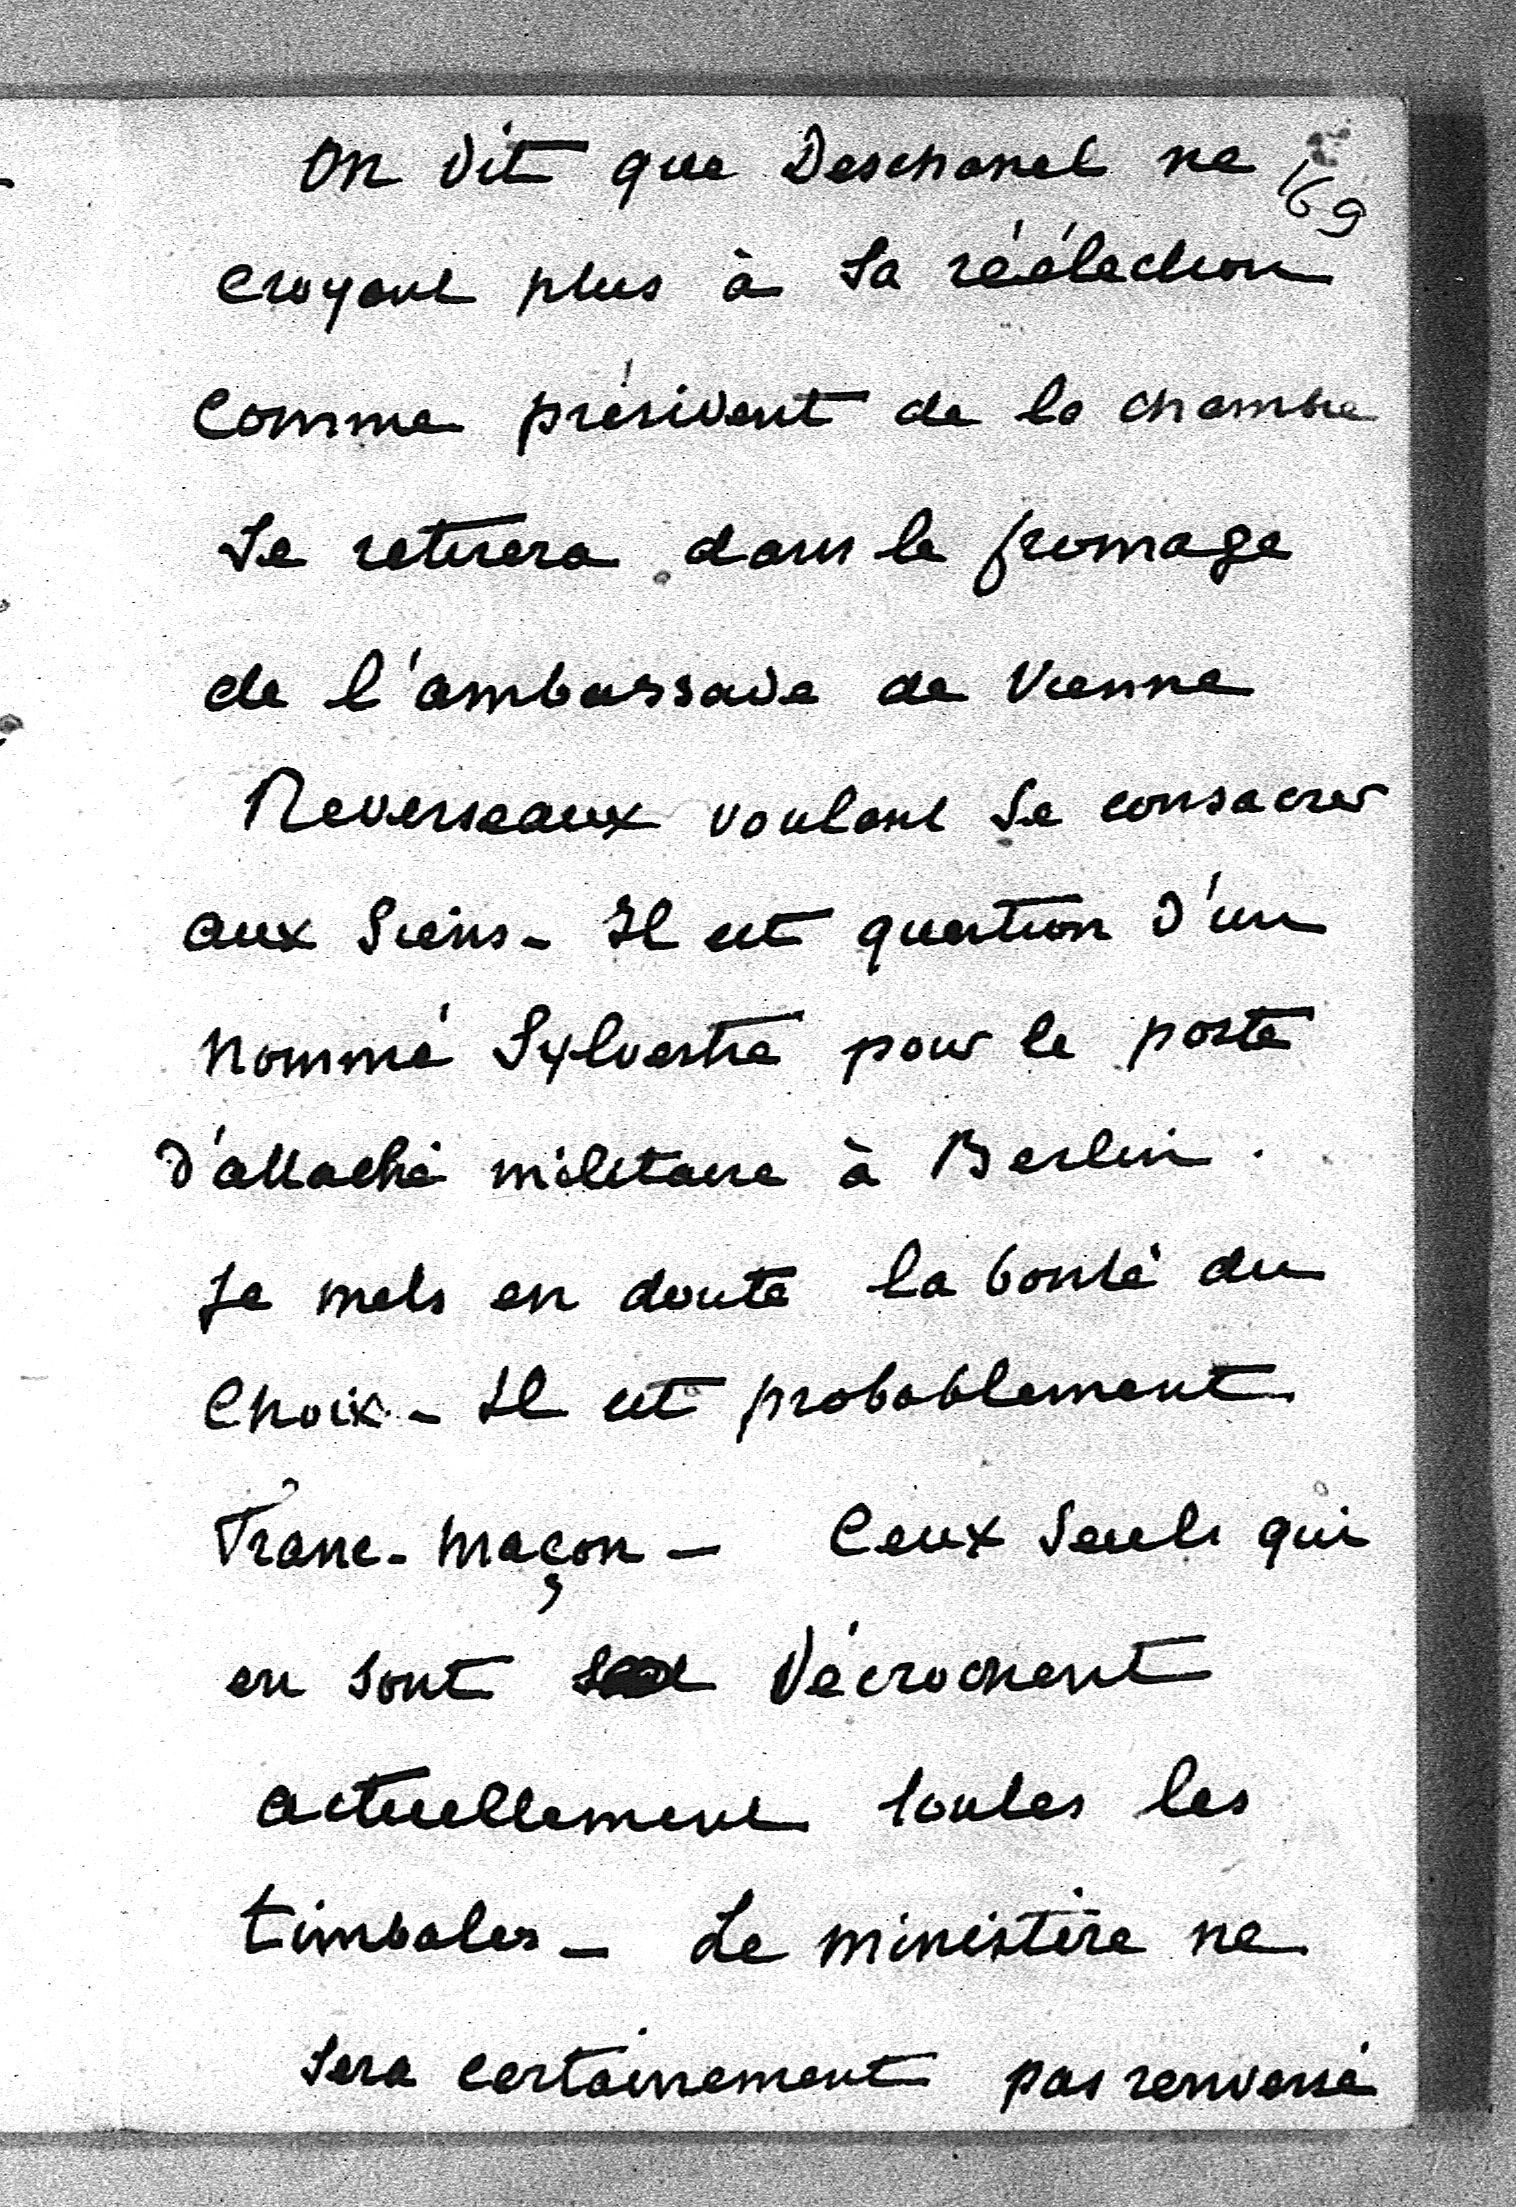 On dit que Deschanel ne
169
croyant plus à sa réélection
comme président de la chambre
se retirera dans le fromage
de l'ambassade de Vienne
Reverseaux voulant se consacrer
aux siens - Il est question d'un
nommé Sylvestre pour le poste
d'attaché militaire à Berlin.
Je mets en doute la bonté du
choix - Il est probablement
Franc-maçon - Ceux seuls qui
en sont décrochent
actuellement toutes les
timbales - Le ministère ne
sera certainement pas renversé